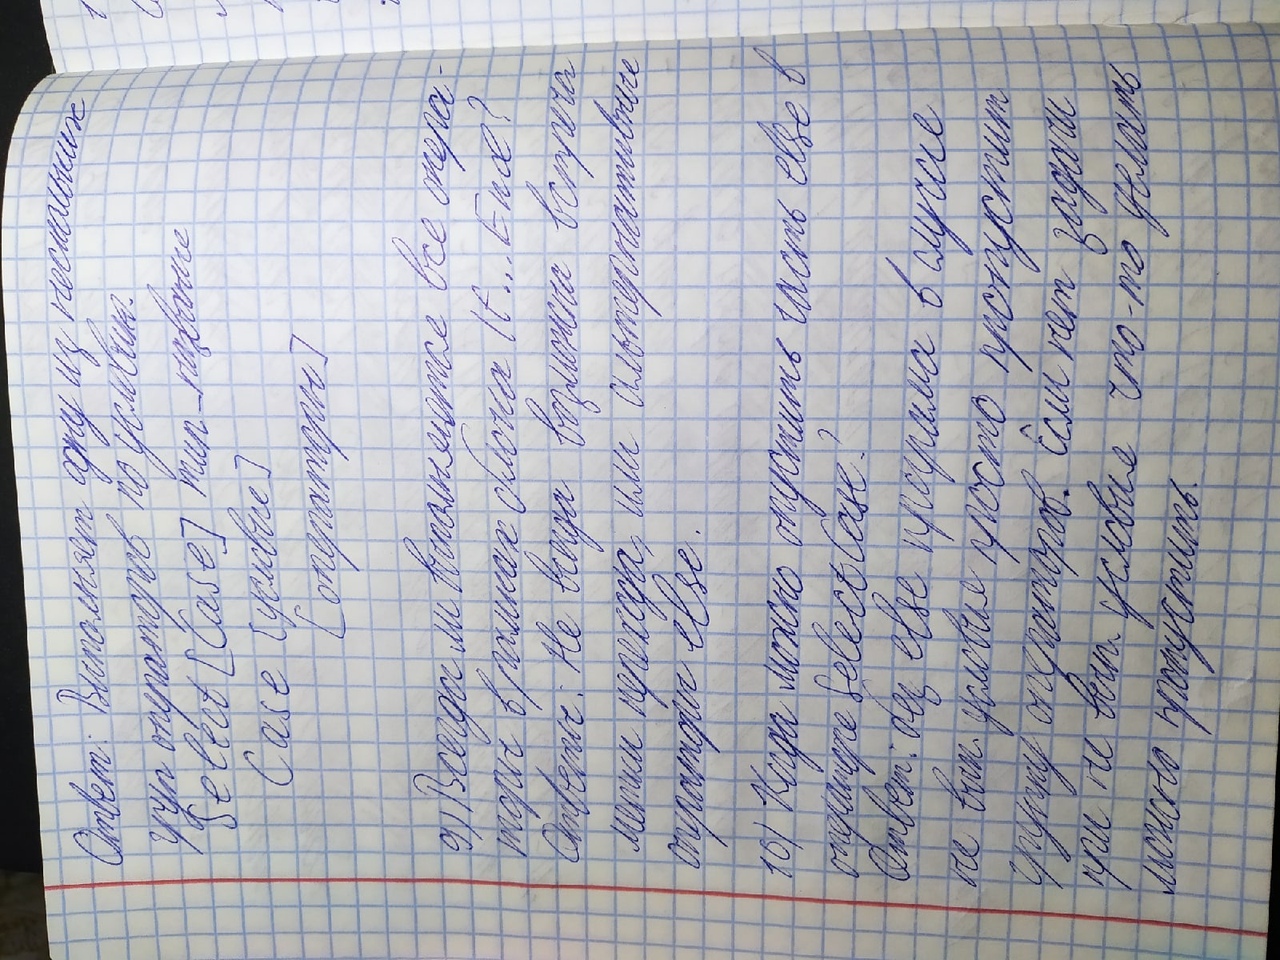 Ответ: Выполняет одну из нескольких
груп операторов по условию.
Select [Case] тип_названые
Case [условие]
[операторы]
9) Всегда ли выполняются все опера-
торы в рамках блока If... End?
Ответ: Не всегда возможна встреча
метки прохода, или альтернативные
оператор else.
10) Когда можно опустить часть else в
операторе Select Case?
Ответ: else в случае
не вып. условия просто пропустит
групу операторов. Если нет задачи
при не вып. условие что-то делать
можно пропустить.